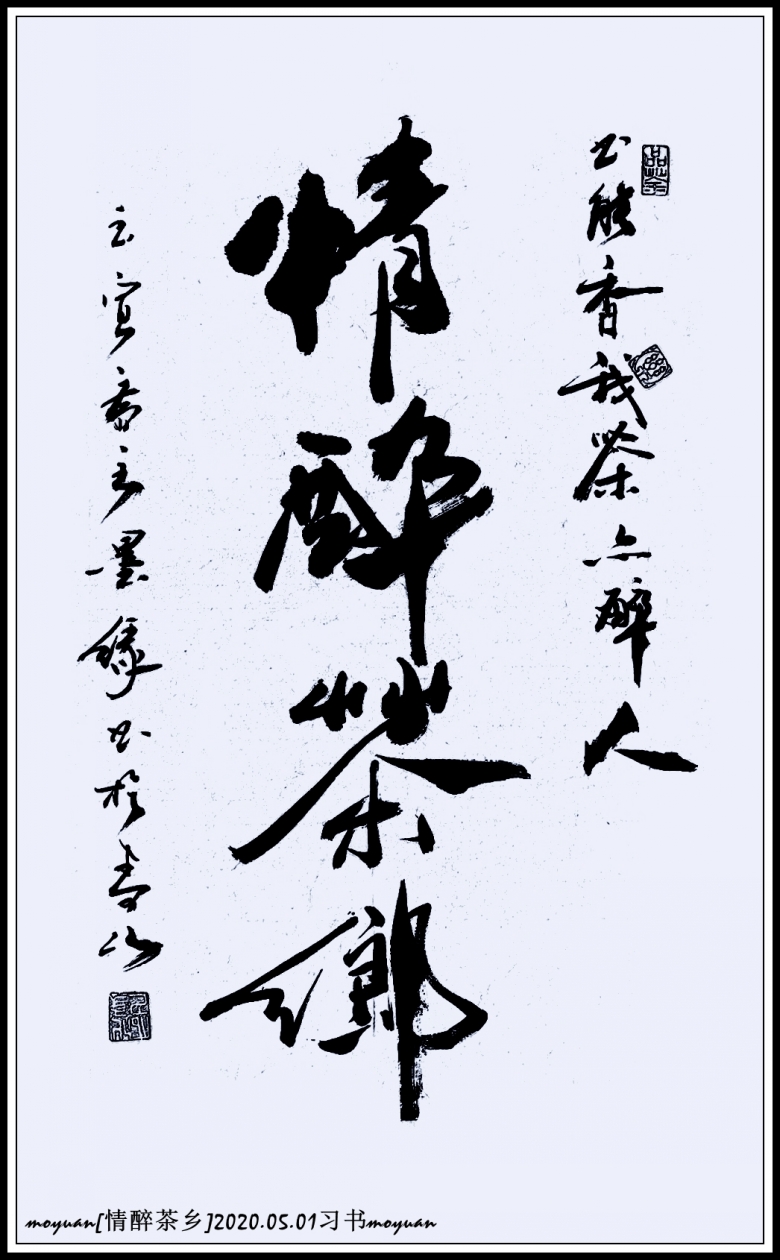 书能香我茶亦醉人
情醉茶鄉
立宜斋主墨缘书於春山
moyuan[情醉茶乡]2020.05.01习书moyuan